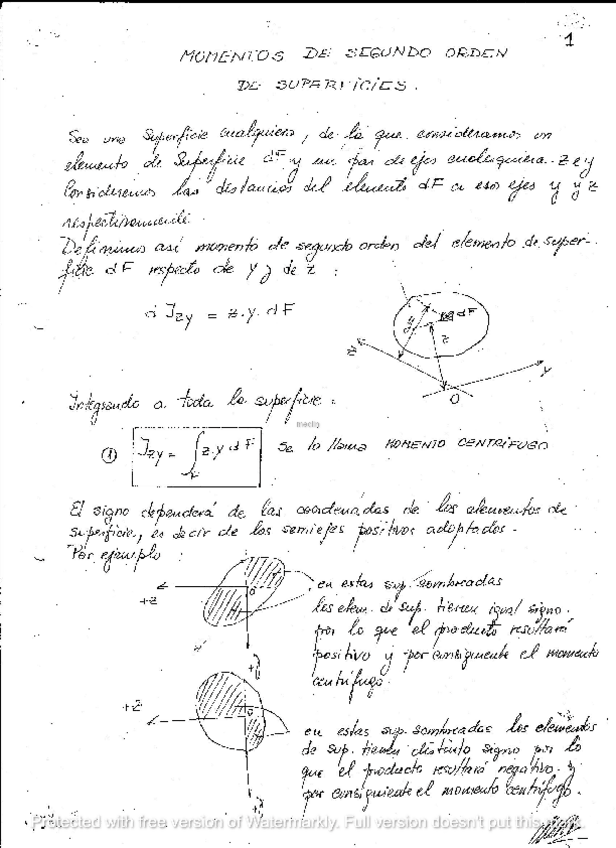 1
MOMENTOS DE SEGUNDO ORDEN
DE SUPERFICIES.
Sea una Superficie cualquiera, de la que consideramos un
elemento de Superficie dF y un par de ejes cualesquiera z e y
Consideremos las distancias del elemento dF a esos ejes y y z
respectivamente.
Definimos así momento de segundo orden del elemento de super-
ficie dF respecto de y y de z :
d Jzy = z.y.dF
dF
y
z
z
y
O
Integrando a toda la superficie:
① Jzy = ∫F z.y dF Se lo llama MOMENTO CENTRÍFUGO
El signo dependerá de las coordenadas de los elementos de
superficie, es decir de los semiejes positivos adoptados.
Por ejemplo :
+z
O
+y
en estas sup. sombreadas
los elem. de sup. tienen igual signo.
por lo que el producto resultará
positivo y por consiguiente el momento
centrífugo.
+z
O
+y
en estas sup. sombreadas los elementos
de sup. tienen distinto signo por lo
que el producto resultará negativo. y
por consiguiente el momento centrífugo.
Protected with free version of Watermarkly. Full version doesn't put this mark.